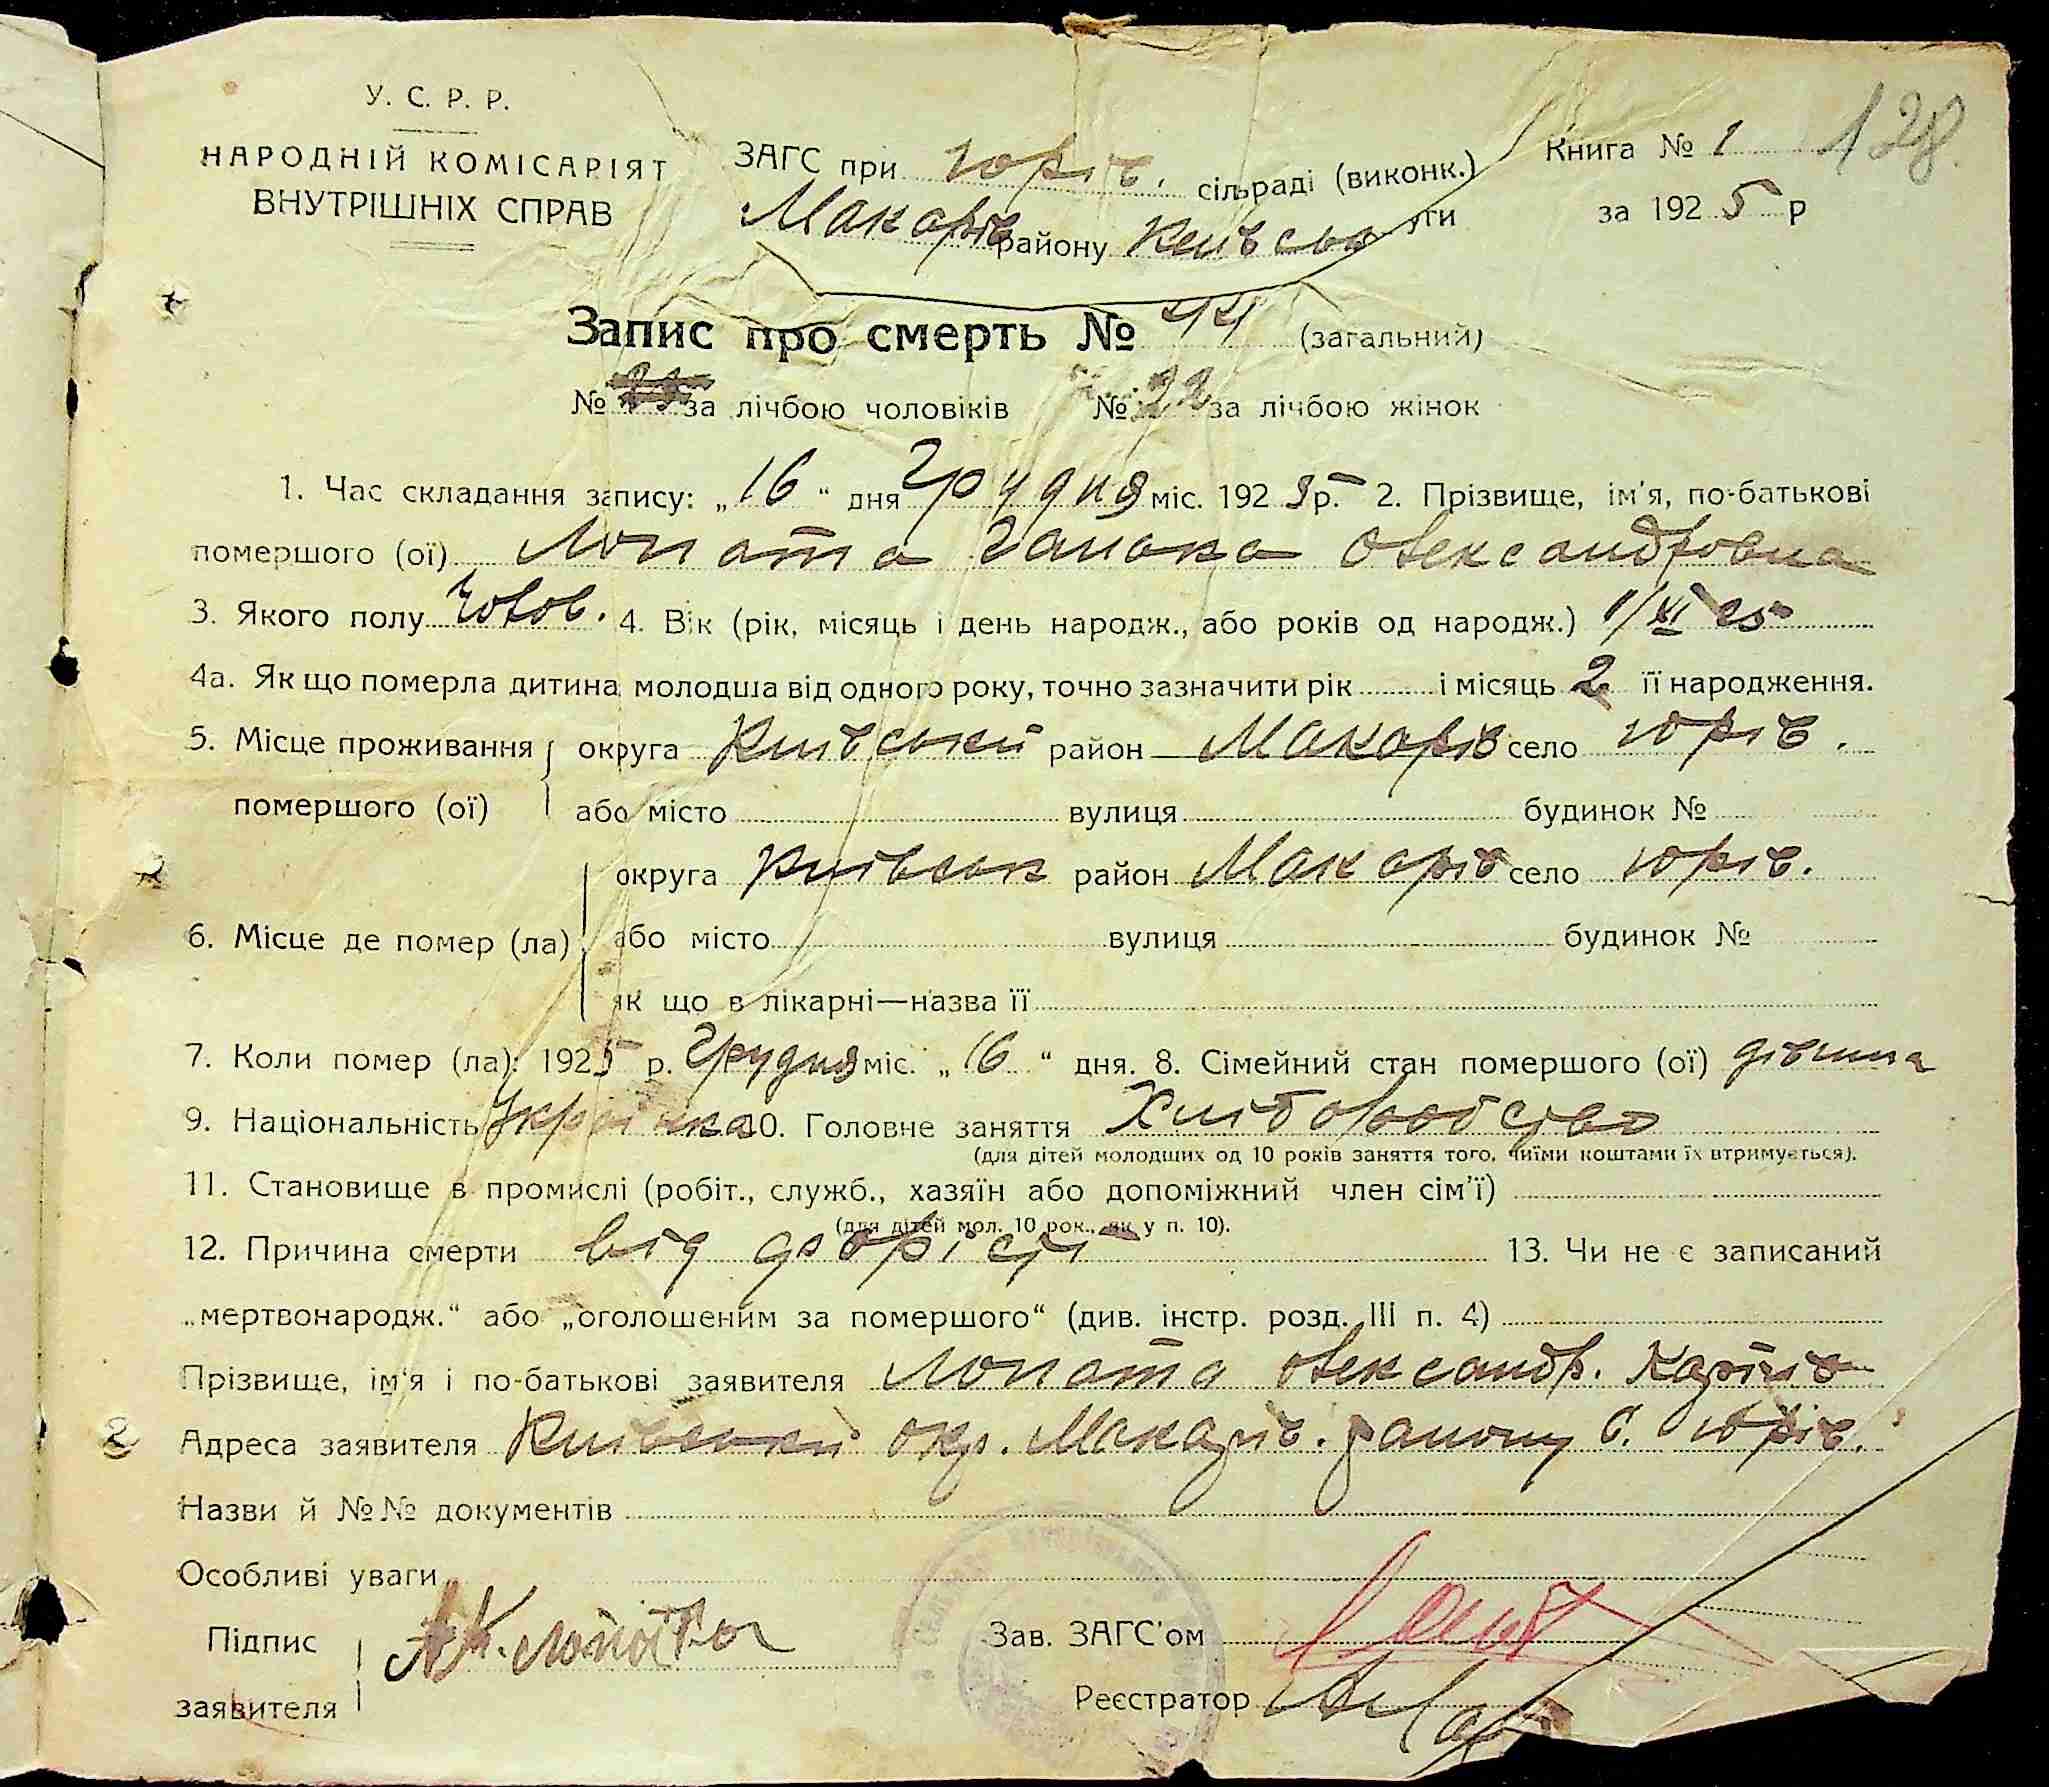 У. С. Р. Р.
НАРОДНІЙ КОМІСАРІЯТ
ВНУТРІШНІХ СПРАВ
ЗАГС при Юрів. сільраді (виконк.)
Макарів району Київсько уги
Книга № 1 128
за 1925 р
Запис про смерть № 44 (загальний)
№ за лічбою чоловіків № 22 за лічбою жінок
1. Час складання запису: „16“ дня Грудня міс. 1925 р. 2. Прізвище, ім'я, по-батькові
помершого (ої) Лопата Олександровна
3. Якого полу Чолов. 4. Вік (рік, місяць і день народж., або років од народж.) 1/XI 25
4а. Як що померла дитина молодша від одного року, точно зазначити рік і місяць 2 її народження.
5. Місце проживання округа Київський район Макарів село Юрів.
помершого (ої) або місто вулиця будинок №
округа Київськ район Макарів село Юрів.
6. Місце де помер (ла) або місто вулиця будинок №
як що в лікарні—назва її
7. Коли помер (ла): 1925 р. Грудня міс. „16“ дня. 8. Сімейний стан помершого (ої) дівчина
9. Національність Українка 10. Головне заняття Хліборобство
(для дітей молодших од 10 років заняття того, чиїми коштами їх втримується).
11. Становище в промислі (робіт., служб., хазяїн або допоміжний член сім'ї)
(для дітей мол. 10 рок., як у п. 10).
12. Причина смерти від 13. Чи не є записаний
„мертвонародж.“ або „оголошеним за помершого“ (див. інстр. розд. III п. 4)
Прізвище, ім'я і по-батькові заявителя Лопата Олександр. Карпів
Адреса заявителя Київський окр. Макарів. району с. Юрів.
Назви й №№ документів
Особливі уваги
Підпис заявителя А.К. Лопата
Зав. ЗАГС'ом
Реєстратор